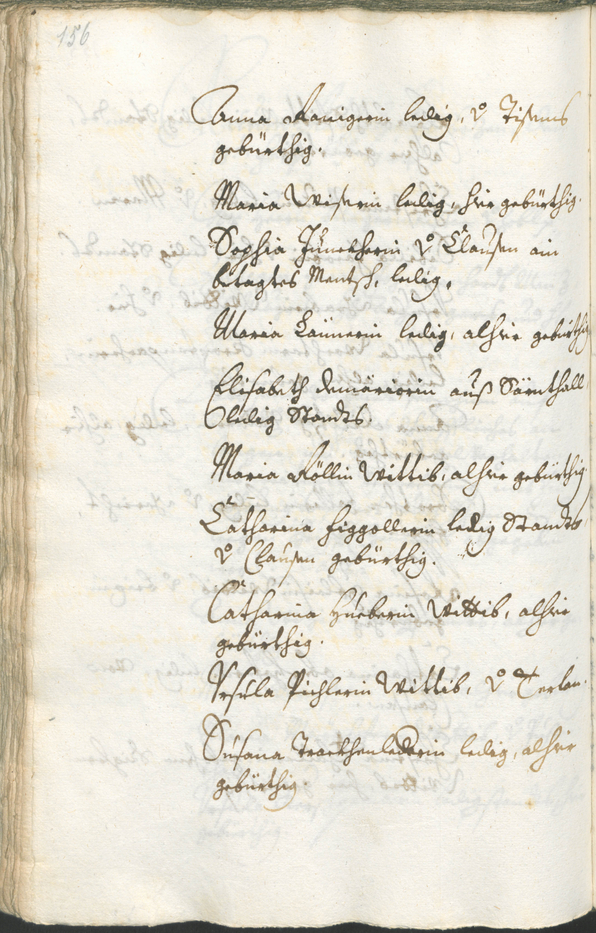 156
Anna Ranigerin ledig, v Tisens
gebürthig.
Maria Wiserin ledig, hir gebürthig.
Sophia v Clausen ain
betagtes Mentsch, ledig.
Maria ledig, alhir gebürthig
Elisabeth auß Särnthall
ledig Standts
Maria Röllin Wittib, alhir gebürthig
Catharina Figgollerin ledig Standts,
v Clausen gebürthig.
Catharina Hueberin Wittib, alhir
gebürthig.
Ursula Pichlerin Wittib, v Terlan.
Susana ledig, alhir
gebürthig